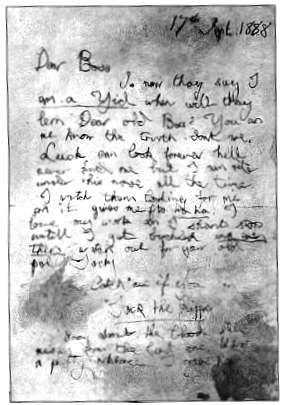 17th Sept. 1888
Dear Boss
So now they say I
am a Yid when will they
lern Dear old Boss? You an
me know the truth dont we.
Lusk can look forever hell
never find me but I am rite
under his nose all the time
I watch them looking for me
an it gives me fits ha ha I
love my work an I shant stop
untill I get buckled and even
then watch out for your old
pal Jacky
Catch me if you
Jack the Ripper
Sorry about the blood still
messy from the last one. What
a pretty necklace gave her